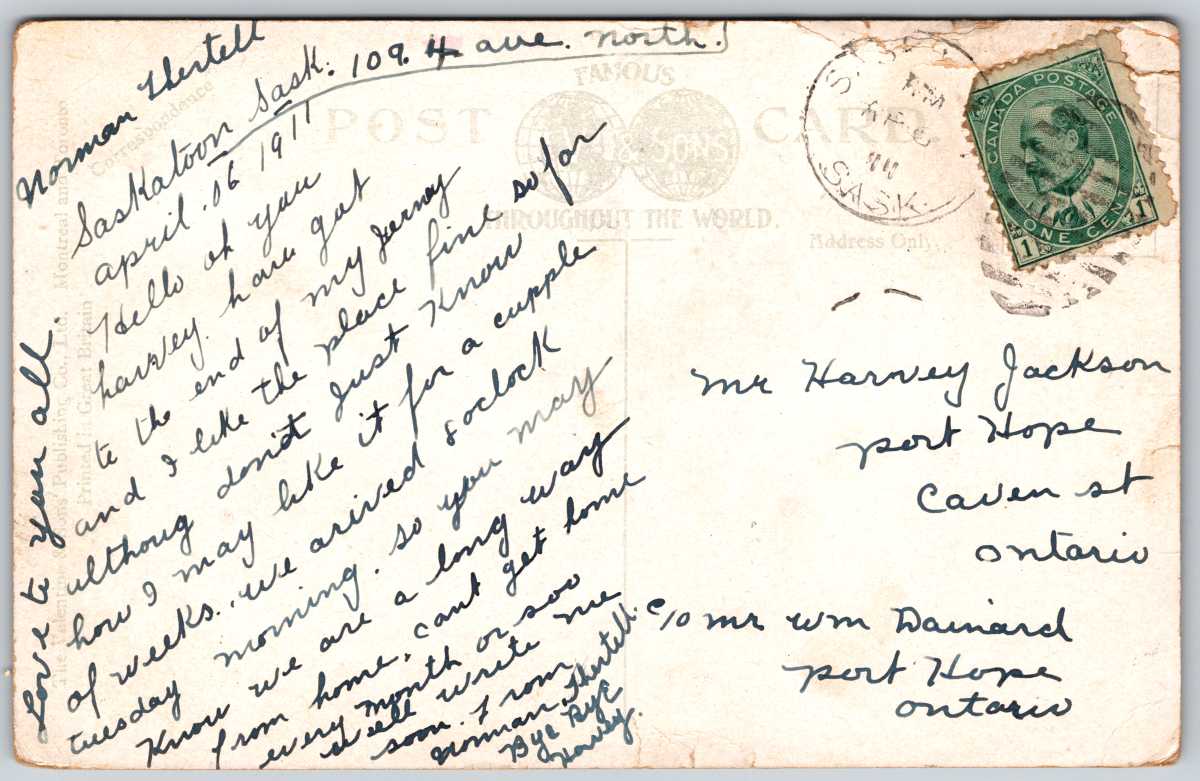 Norman Thertell
Saskatoon Sask. 109. 4 ave. north.
april. 06 1911
Hello oh you
harvey. have got
to the end of my Jerney
and I like the place fine so far
ulthoug don't Just Know
how I may like it for a cupple
of weeks. we arived 8oclock
tuesday morning. so you may
Know we are a long way
from home, cant get home
every month or soo
well write me
soon. From
Norman. Thertell.
Bye Bye
Harvey.
Love to you all.
Correspondence
The Valentine & Sons' Publishing Co., Ltd. Montreal and Toronto
Printed in Great Britain
FAMOUS
POST CARD
& SONS
THROUGHOUT THE WORLD.
Address Only
SASK.
CANADA POSTAGE
ONE CENT
1 1
Mr Harvey Jackson
port Hope
Caven st
ontario
c/o mr wm Dainard
port Hope
ontario